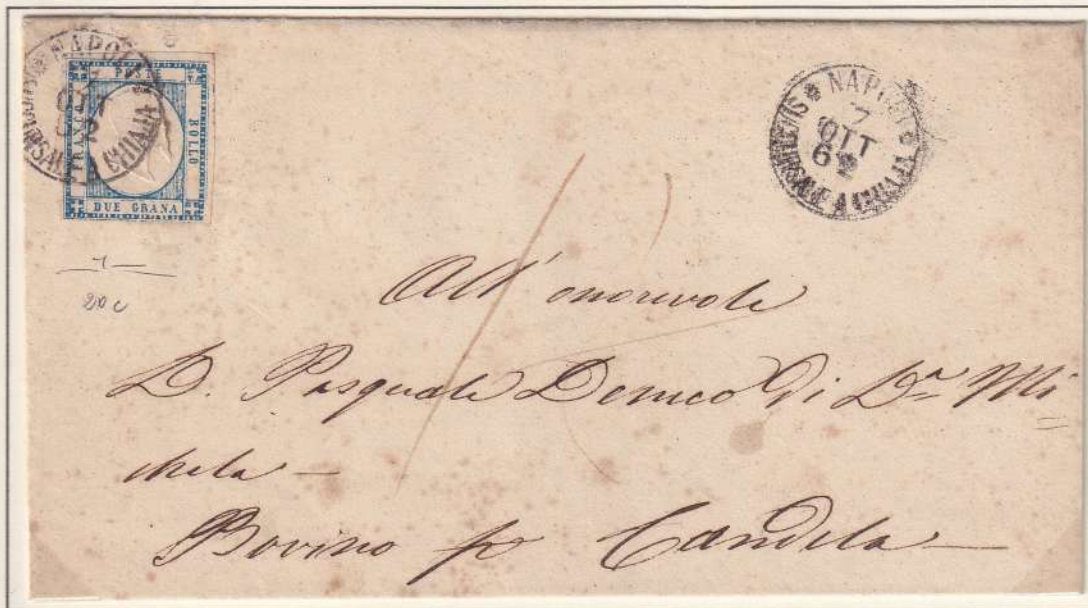 NAPOLI
SUCCURSALE A CHIAJA
POSTE
FRANCO
BOLLO
DUE GRANA
NAPOLI
7
OTT
62
SUCCURSALE A CHIAJA
1
20 c
All' onorevole
D. Pasquale di Dn Mi=
chele —
Bovino per Candela —